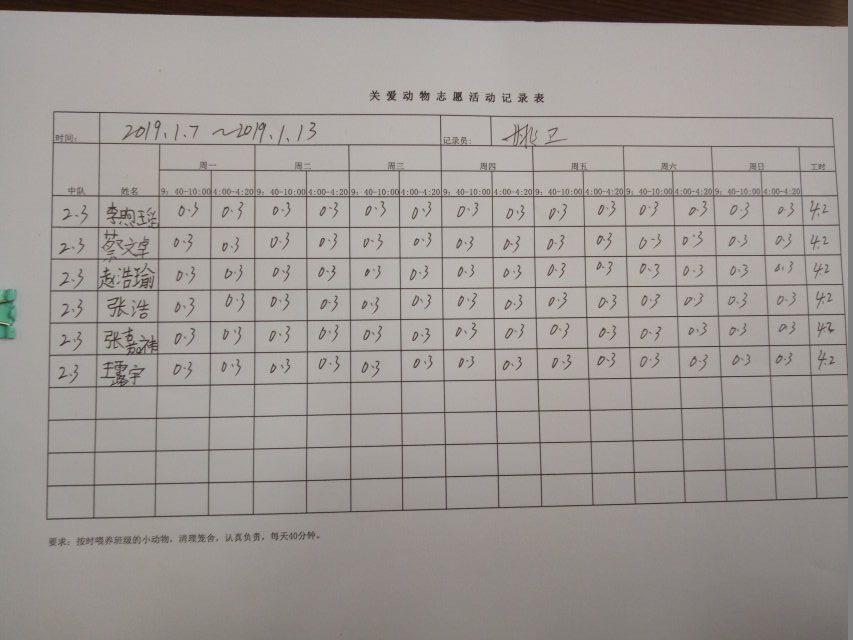 关爱动物志愿活动记录表
时间: 2019.1.7 ~2019.1.13 记录员: 姚卫
周一 周二 周三 周四 周五 周六 周日 工时
中队 姓名 9:40-10:00 4:00-4:20 9:40-10:00 4:00-4:20 9:40-10:00 4:00-4:20 9:40-10:00 4:00-4:20 9:40-10:00 4:00-4:20 9:40-10:00 4:00-4:20 9:40-10:00 4:00-4:20
2.3 李煦瑶 0.3 0.3 0.3 0.3 0.3 0.3 0.3 0.3 0.3 0.3 0.3 0.3 0.3 0.3 4.2
2.3 蔡文卓 0.3 0.3 0.3 0.3 0.3 0.3 0.3 0.3 0.3 0.3 0.3 0.3 0.3 0.3 4.2
2.3 赵浩瑜 0.3 0.3 0.3 0.3 0.3 0.3 0.3 0.3 0.3 0.3 0.3 0.3 0.3 0.3 4.2
2.3 张浩 0.3 0.3 0.3 0.3 0.3 0.3 0.3 0.3 0.3 0.3 0.3 0.3 0.3 0.3 4.2
2.3 张嘉祎 0.3 0.3 0.3 0.3 0.3 0.3 0.3 0.3 0.3 0.3 0.3 0.3 0.3 0.3
2.3 王露宇 0.3 0.3 0.3 0.3 0.3 0.3 0.3 0.3 0.3 0.3 0.3 0.3 0.3 0.3 4.2
要求: 按时喂养班级的小动物，清理笼舍，认真负责，每天40分钟。